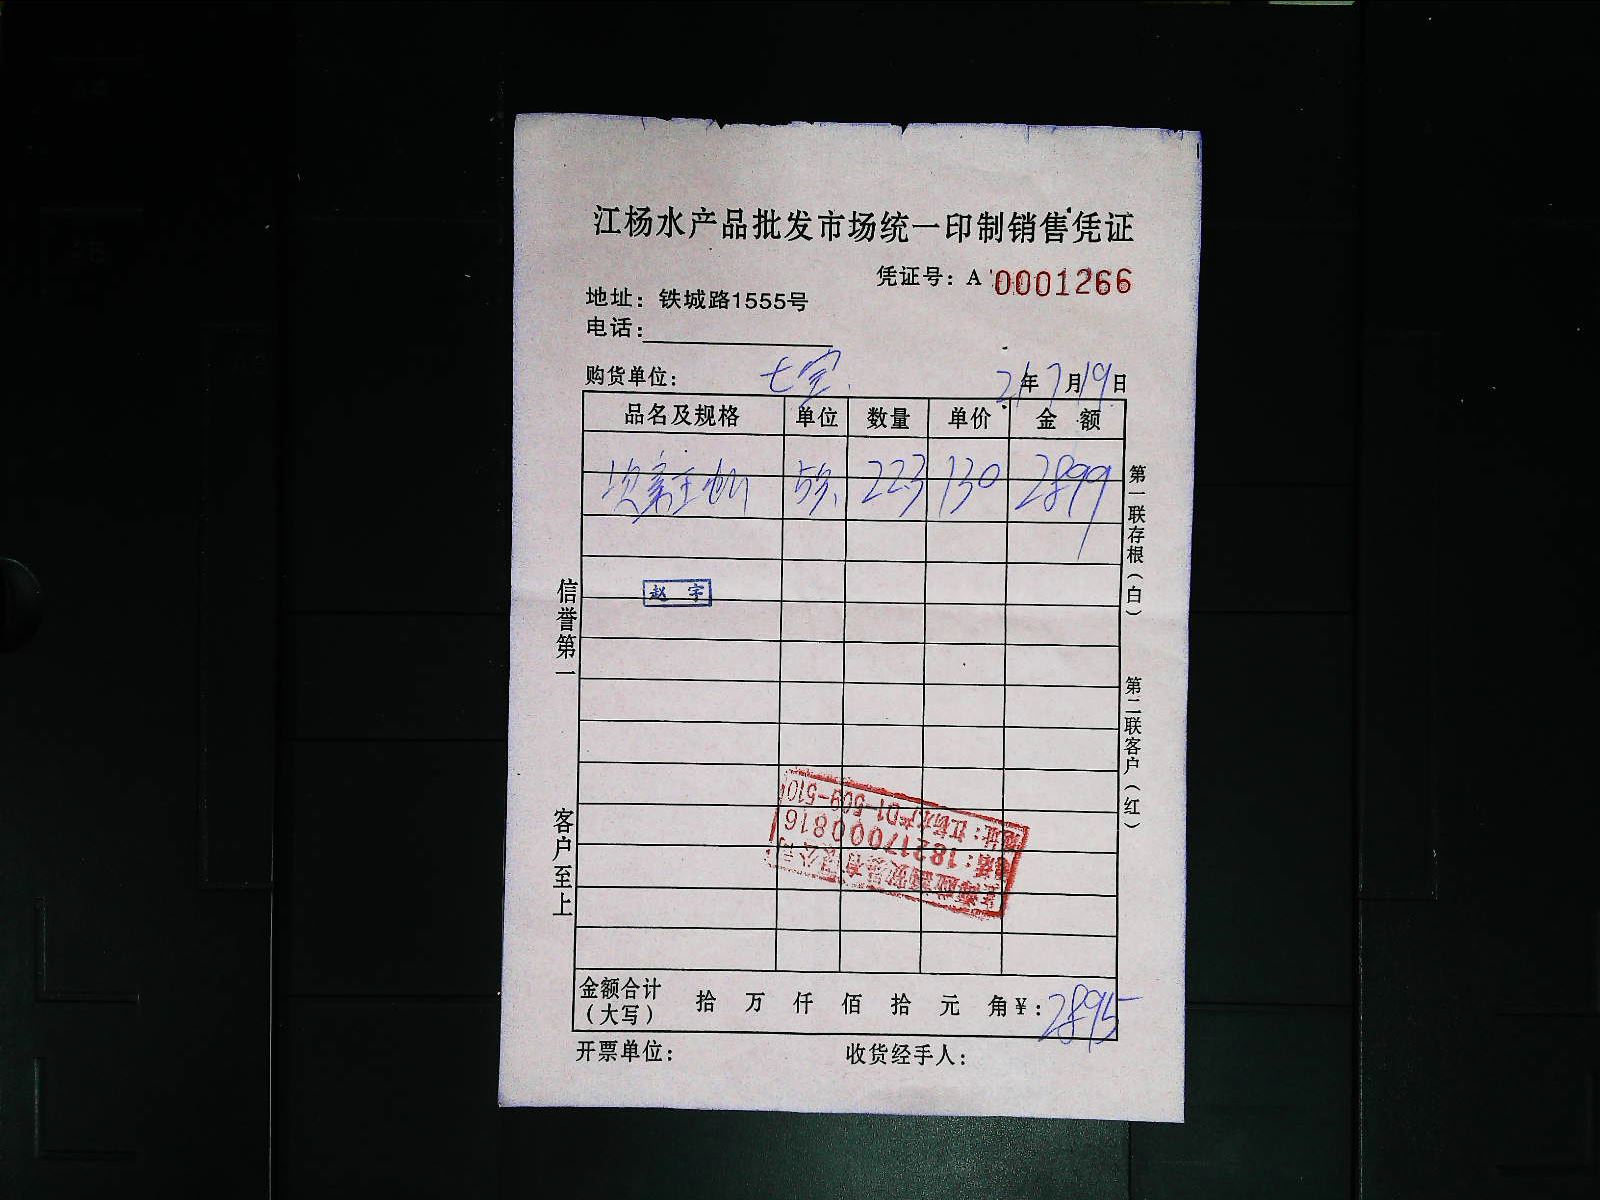 江杨水产品批发市场统一印制销售凭证
凭证号：A 0001266
地址：铁城路1555号
电话：
购货单位：七宝 21年7月19日
品名及规格 单位 数量 单价 金额
223 130 2899
赵宇
信誉第一
客户至上
第一联存根（白）
第二联客户（红）
电话：18217000816
地址：江杨水产D1-509-510
金额合计（大写） 拾 万 仟 佰 拾 元 角 ¥：2895
开票单位： 收货经手人：